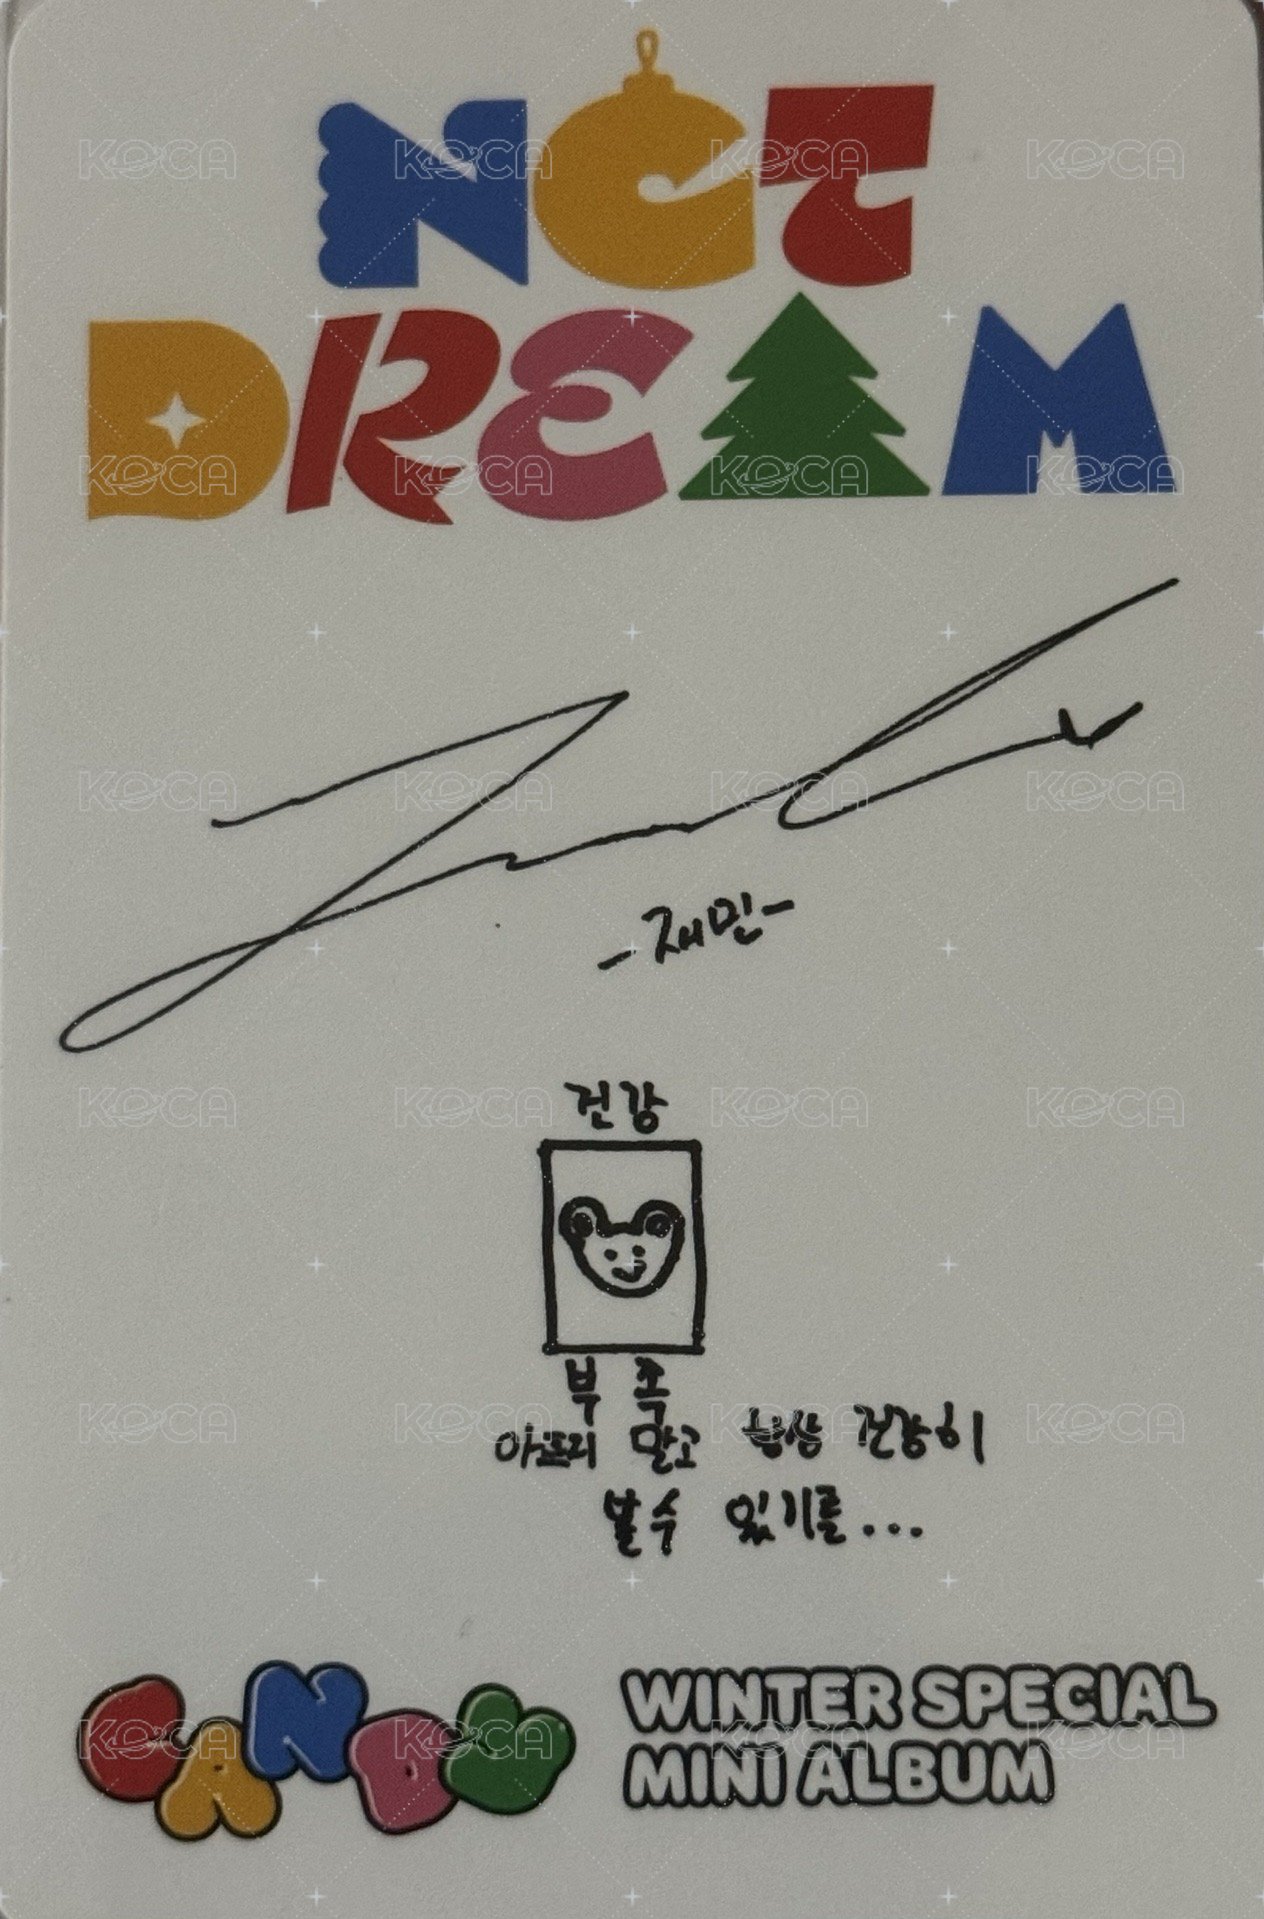 NCT
DREAM
-재민-
건강
부 족
아프지 말고 항상 건강히
볼 수 있기를...
CANDY
WINTER SPECIAL
MINI ALBUM
KOCA